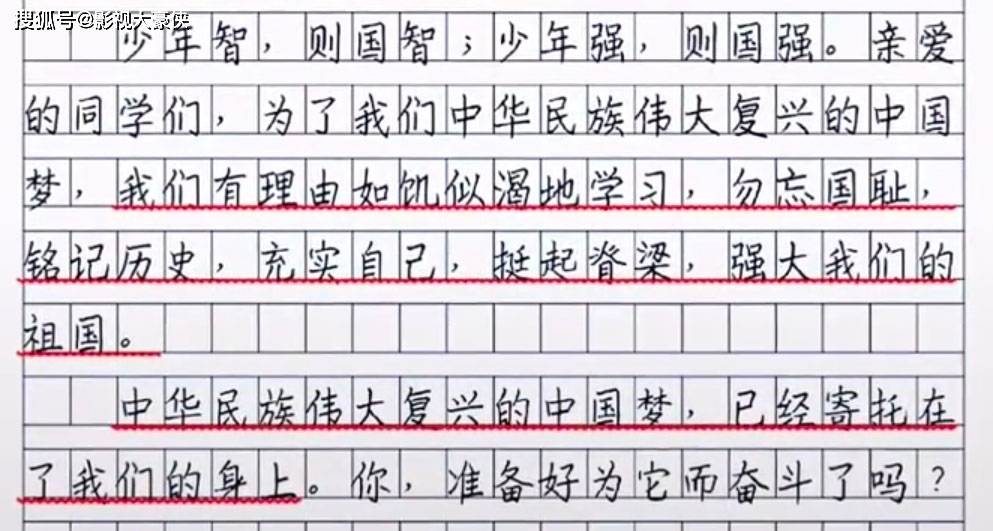 搜狐号@影视大豪侠
少年智，则国智；少年强，则国强。亲爱
的同学们，为了我们中华民族伟大复兴的中国
梦，我们有理由如饥似渴地学习，勿忘国耻，
铭记历史，充实自己，挺起脊梁，强大我们的
祖国。
中华民族伟大复兴的中国梦，已经寄托在
了我们的身上。你，准备好为它而奋斗了吗？